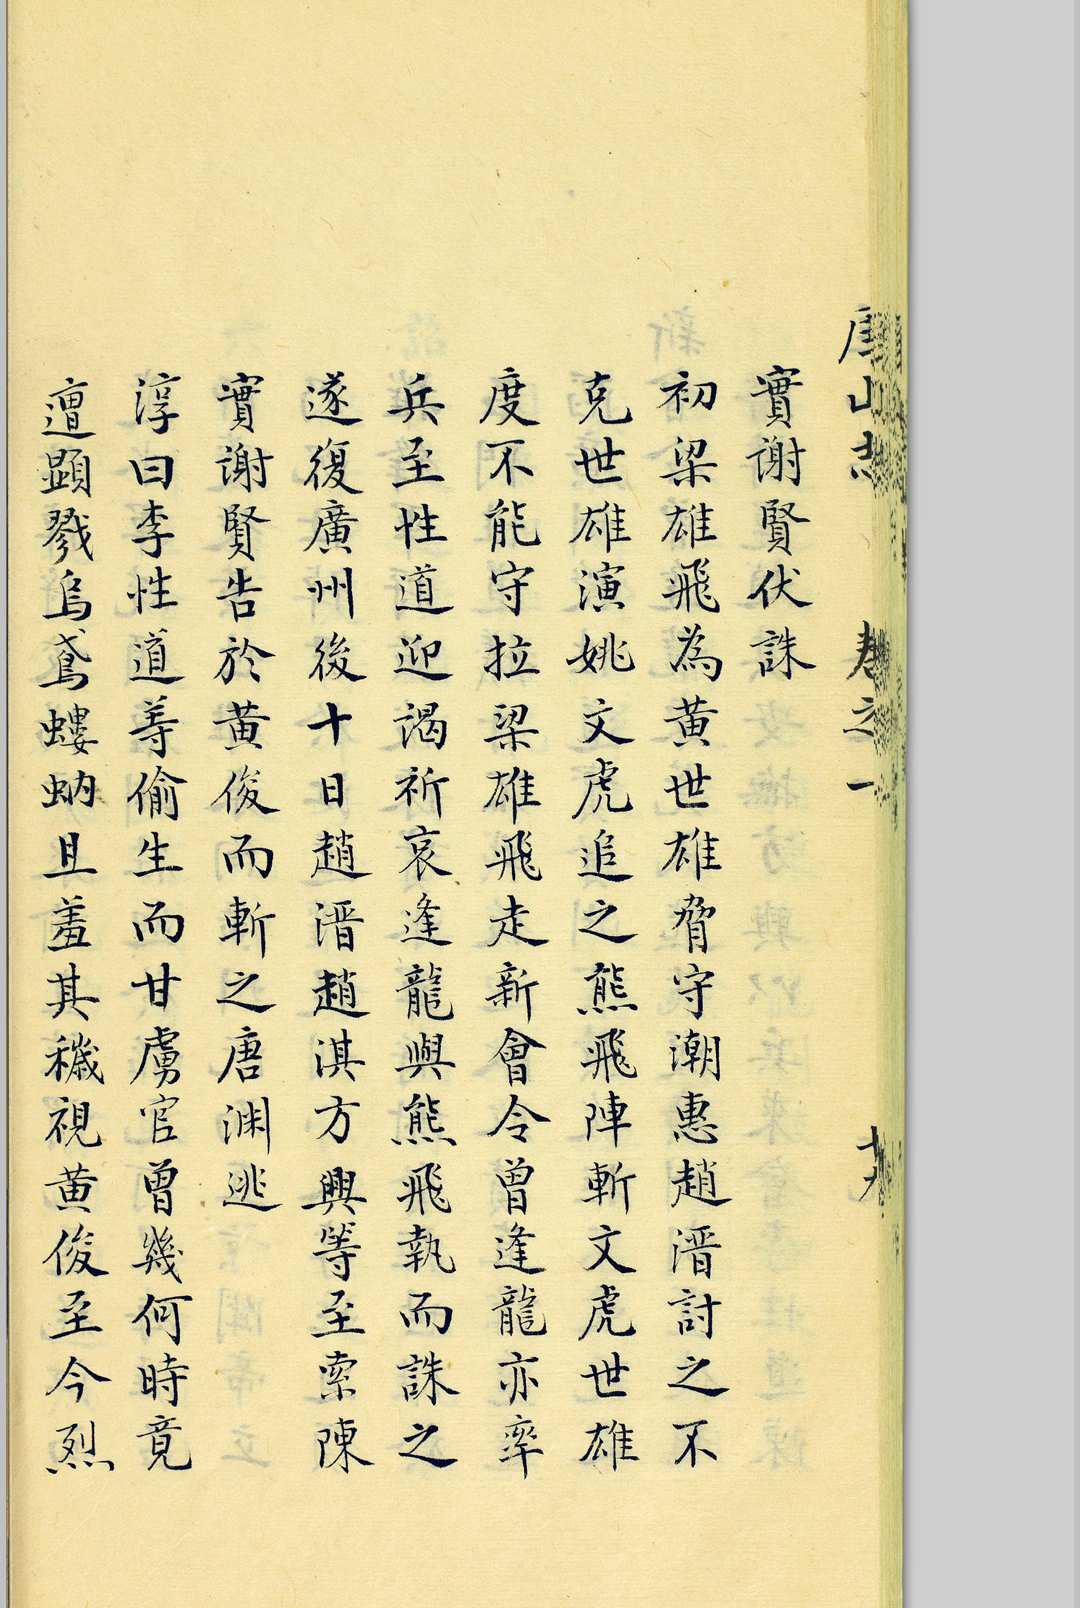 厓山志 卷之一
實謝賢伏誅
初梁雄飛為黃世雄脅守潮惠趙溍討之不
克世雄演姚文虎追之熊飛陣斬文虎世雄
度不能守拉梁雄飛走新會令曾逢龍亦率
兵至性道迎謁祈哀逢龍與熊飛執而誅之
遂復廣州後十日趙溍趙淇方興等至索陳
實謝賢告於黃俊而斬之唐渊逃
淳曰李性道等偷生而甘虜官曾幾何時竟
遭顯戮烏鳶螻蚋且羞其穢視黃俊至今烈